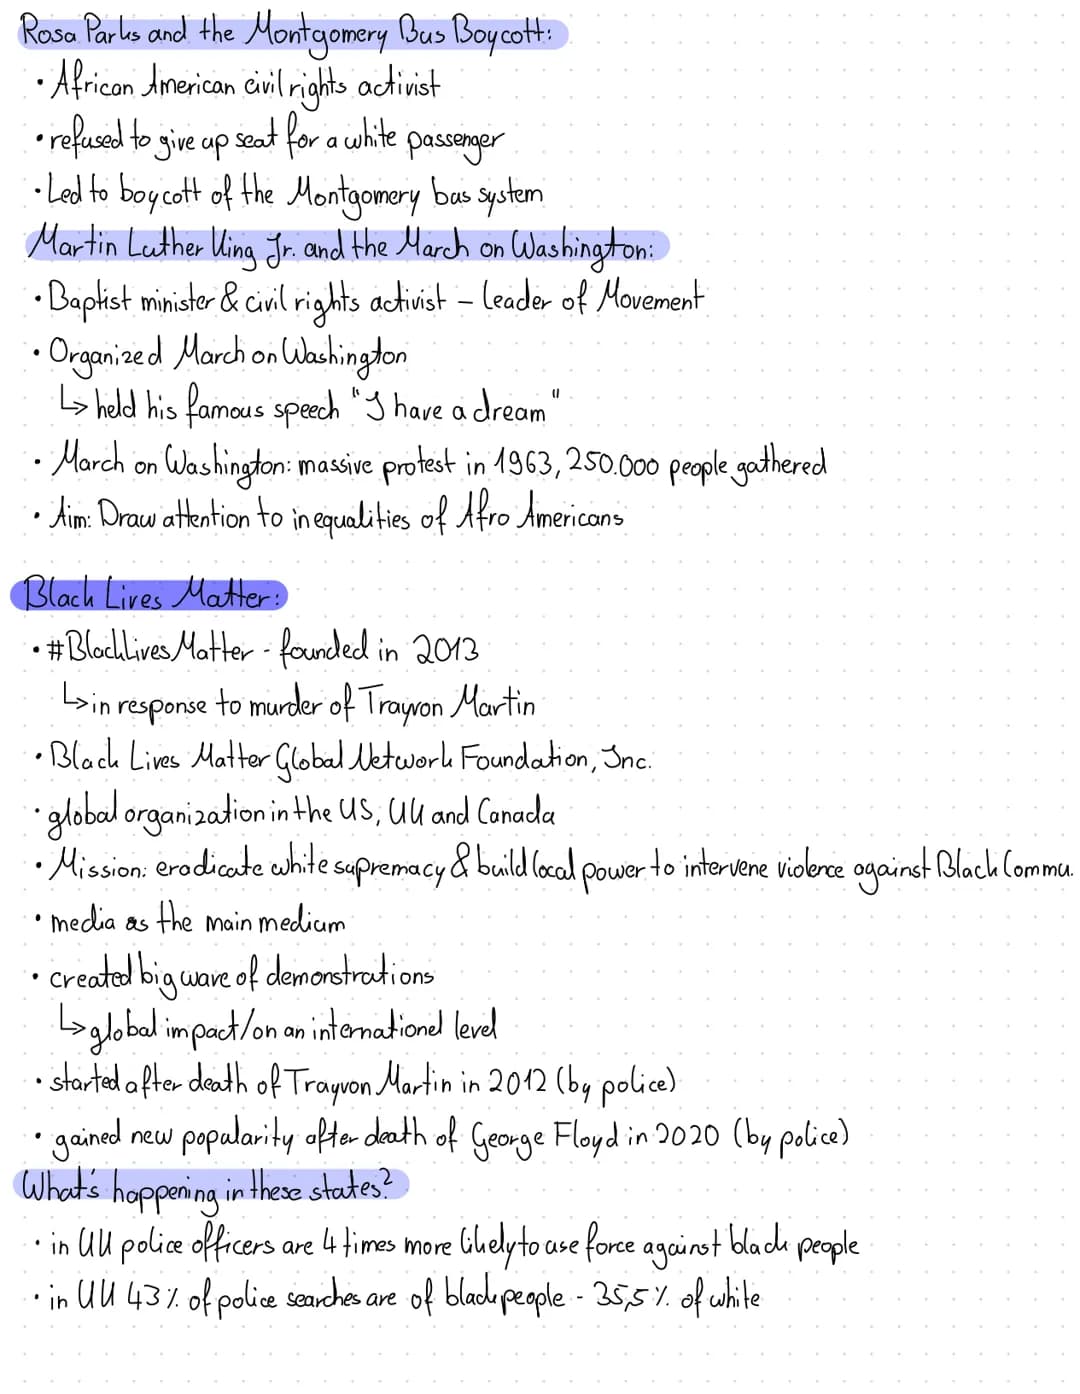 Rosa Parks and the Montgomery Bus Boycott:
• African American civil rights activist
• refused to give up seat for a white passenger
• Led to boycott of the Montgomery bus system
Martin Luther King Jr. and the March on Washington:
• Baptist minister & civil rights activist – leader of Movement
• Organized March on Washington
↳ held his famous speech "I have a dream"
• March on Washington: massive protest in 1963, 250.000 people gathered
• Aim: Draw attention to inequalities of Afro Americans
Black Lives Matter:
• #BlackLivesMatter - founded in 2013
↳ in response to murder of Trayvon Martin
• Black Lives Matter Global Network Foundation, Inc.
• global organization in the US, UK and Canada
• Mission: eradicate white supremacy & build local power to intervene violence against Black Commu.
• media as the main medium
• created big wave of demonstrations
↳ global impact/on an internationel level
• started after death of Trayvon Martin in 2012 (by police)
• gained new popularity after death of George Floyd in 2020 (by police)
What's happening in these states?
• in UK police officers are 4 times more likely to use force against black people
• in UK 43% of police searches are of black people - 35,5% of white